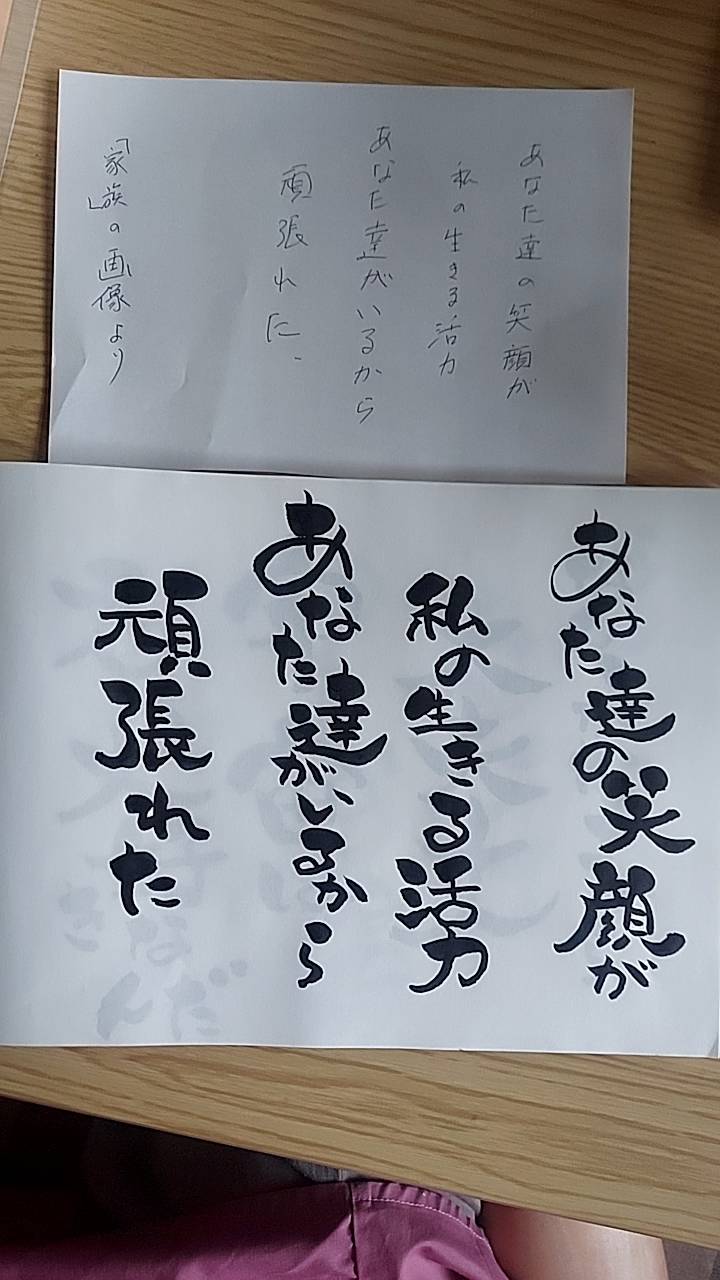 あなた達の笑顔が
私の生きる活力
あなた達がいるから
頑張れた、
「家族」の画像より
あなた達の笑顔が
私の生きる活力
あなた達がいるから
頑張れた